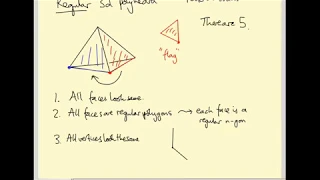 Regular 3d polyhedra
There are 5.
"flag"
1. All faces look same.
2. All faces are regular polygons → each face is a regular n-gon
3. All vertices look the same